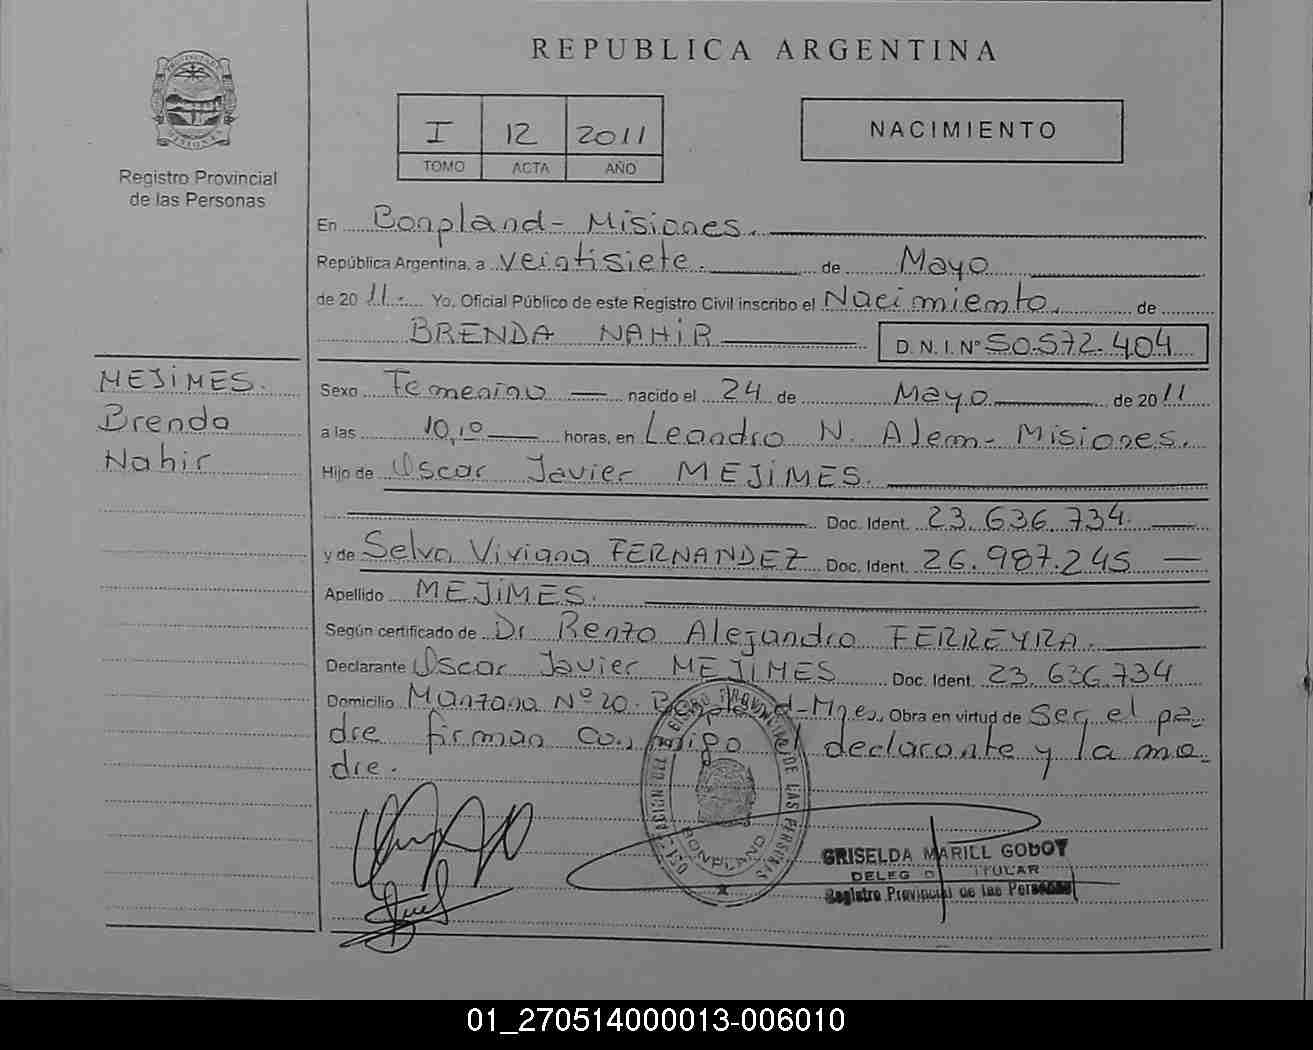 REPUBLICA ARGENTINA
I 12 2011
TOMO ACTA AÑO
NACIMIENTO
Registro Provincial
de las Personas
En Bonpland - Misiones.
República Argentina, a veintisiete. de Mayo
de 2011.- Yo, Oficial Público de este Registro Civil inscribo el Nacimiento. de
BRENDA NAHIR D.N.I. Nº 50.572.404
MEJIMES.
Brenda
Nahir
Sexo Femenino nacido el 24 de Mayo de 2011
a las 10,10 horas, en Leandro N. Alem - Misiones.
Hijo de Oscar Javier MEJIMES.
Doc. Ident. 23.636.734.
y de Selva Viviana FERNANDEZ Doc. Ident. 26.987.245
Apellido MEJIMES.
Según certificado de Dr Renzo Alejandro FERREYRA.
Declarante Oscar Javier MEJIMES Doc. Ident. 23.636.734
Domicilio Manzana Nº 20. Bonpland - Mnes. Obra en virtud de Ser el pa-
dre firman conmigo el declarante y la ma-
dre.
BONPLAND
GRISELDA MARILL GODOY
TITULAR
Registro Provincial de las Personas
01_270514000013-006010